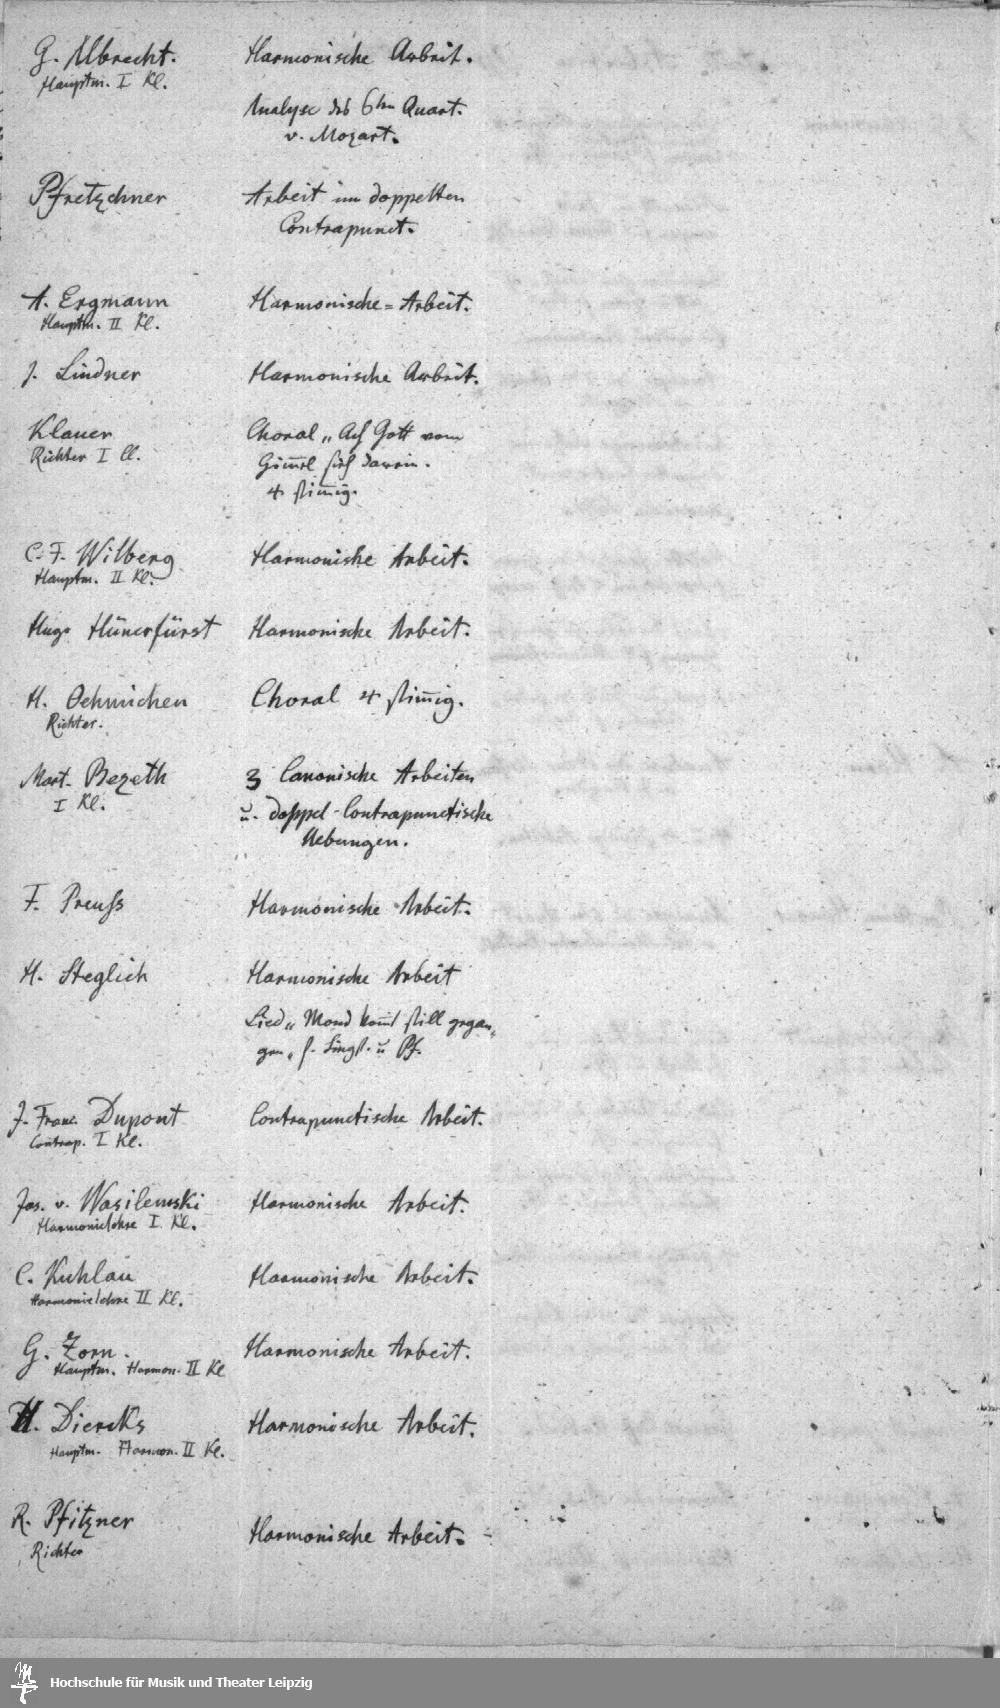 G. Albrecht. Harmonische Arbeit.
Hauptm. I Kl.
Analyse des 6ten Quart.
v. Mozart.
Pfretzchner Arbeit im doppelten
Contrapunct.
A. Ergmann Harmonische=Arbeit.
Hauptm. II Kl.
J. Lindner Harmonische Arbeit.
Klauer Choral „Ach Gott vom
Richter I Cl. Himmel sieh darein.
4 stim̅ig.
C. F. Wilberg Harmonische Arbeit.
Hauptm. II Kl.
Hugo Hünerfürst Harmonische Arbeit.
H. Oehmichen Choral 4 stim̅ig.
Richter.
Mart. Bezeth 3 Canonische Arbeiten
I Kl. u. doppel-Contrapunctische
Uebungen.
F. Preuſs Harmonische Arbeit.
H. Steglich Harmonische Arbeit
Lied „Mond kom̅t still gegan„
gen„ f. Singst. u Pf.
J. Franc. Dupont Contrapunctische Arbeit.
Contrap. I Kl.
Jos. v. Wasilewski Harmonische Arbeit.
Harmonielehre I. Kl.
C. Kuhlau Harmonische Arbeit.
Harmonielehre II Kl.
G. Zorn. Harmonische Arbeit.
Hauptm. Harmon. II Kl
H. Diercks Harmonische Arbeit.
Hauptm. Harmon. II Kl.
R. Pfitzner Harmonische Arbeit.
Richter
Hochschule für Musik und Theater Leipzig